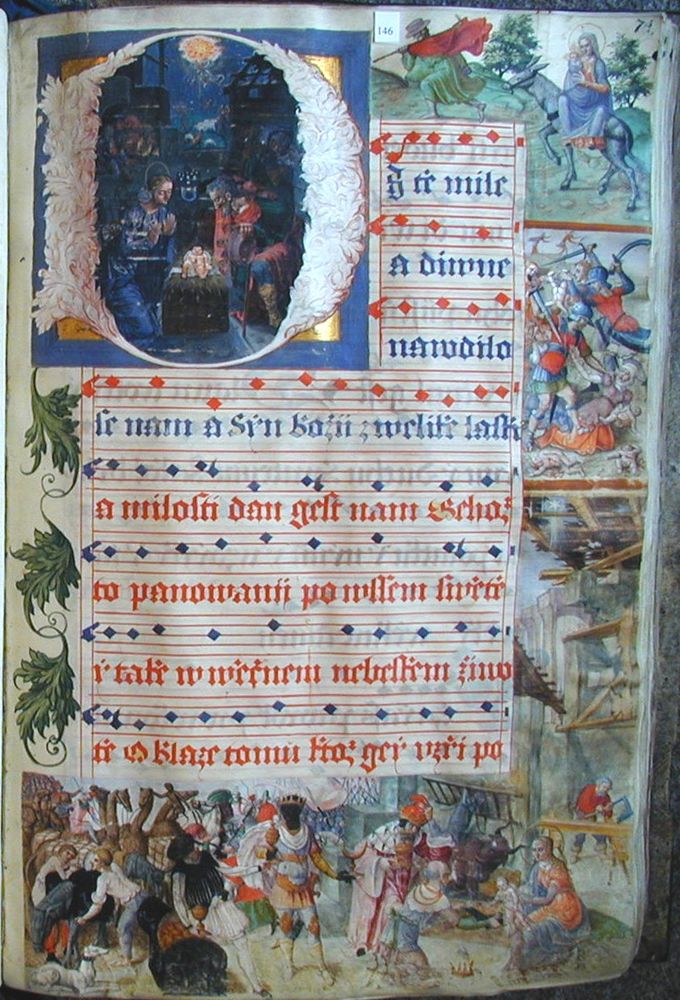 146
74
O
ġ tě mile
a diwne
narodilo
se nam a Syn Božij z welike laske
a milosti dan gest nam Gehož
to panowanij po wssem swětě
y take w wěčnem nebeskem žiwo
tě O blaze tomu ktož gey vzři po